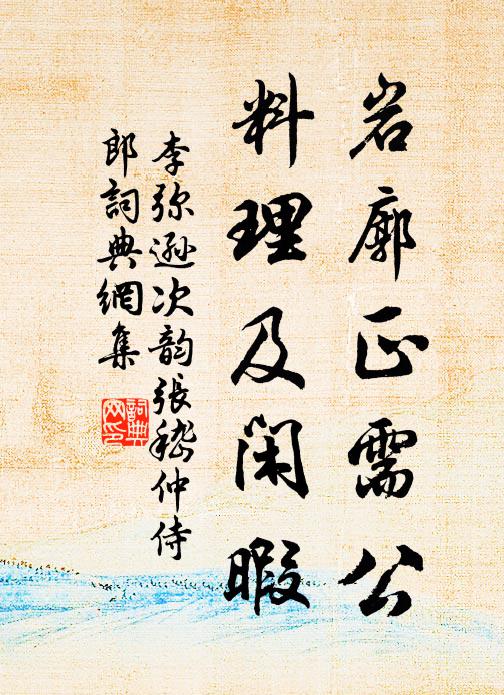 岩廊正需公
料理及閑暇
李弥遜次韵張嵇仲侍
郎詞典網集
詞典
网印